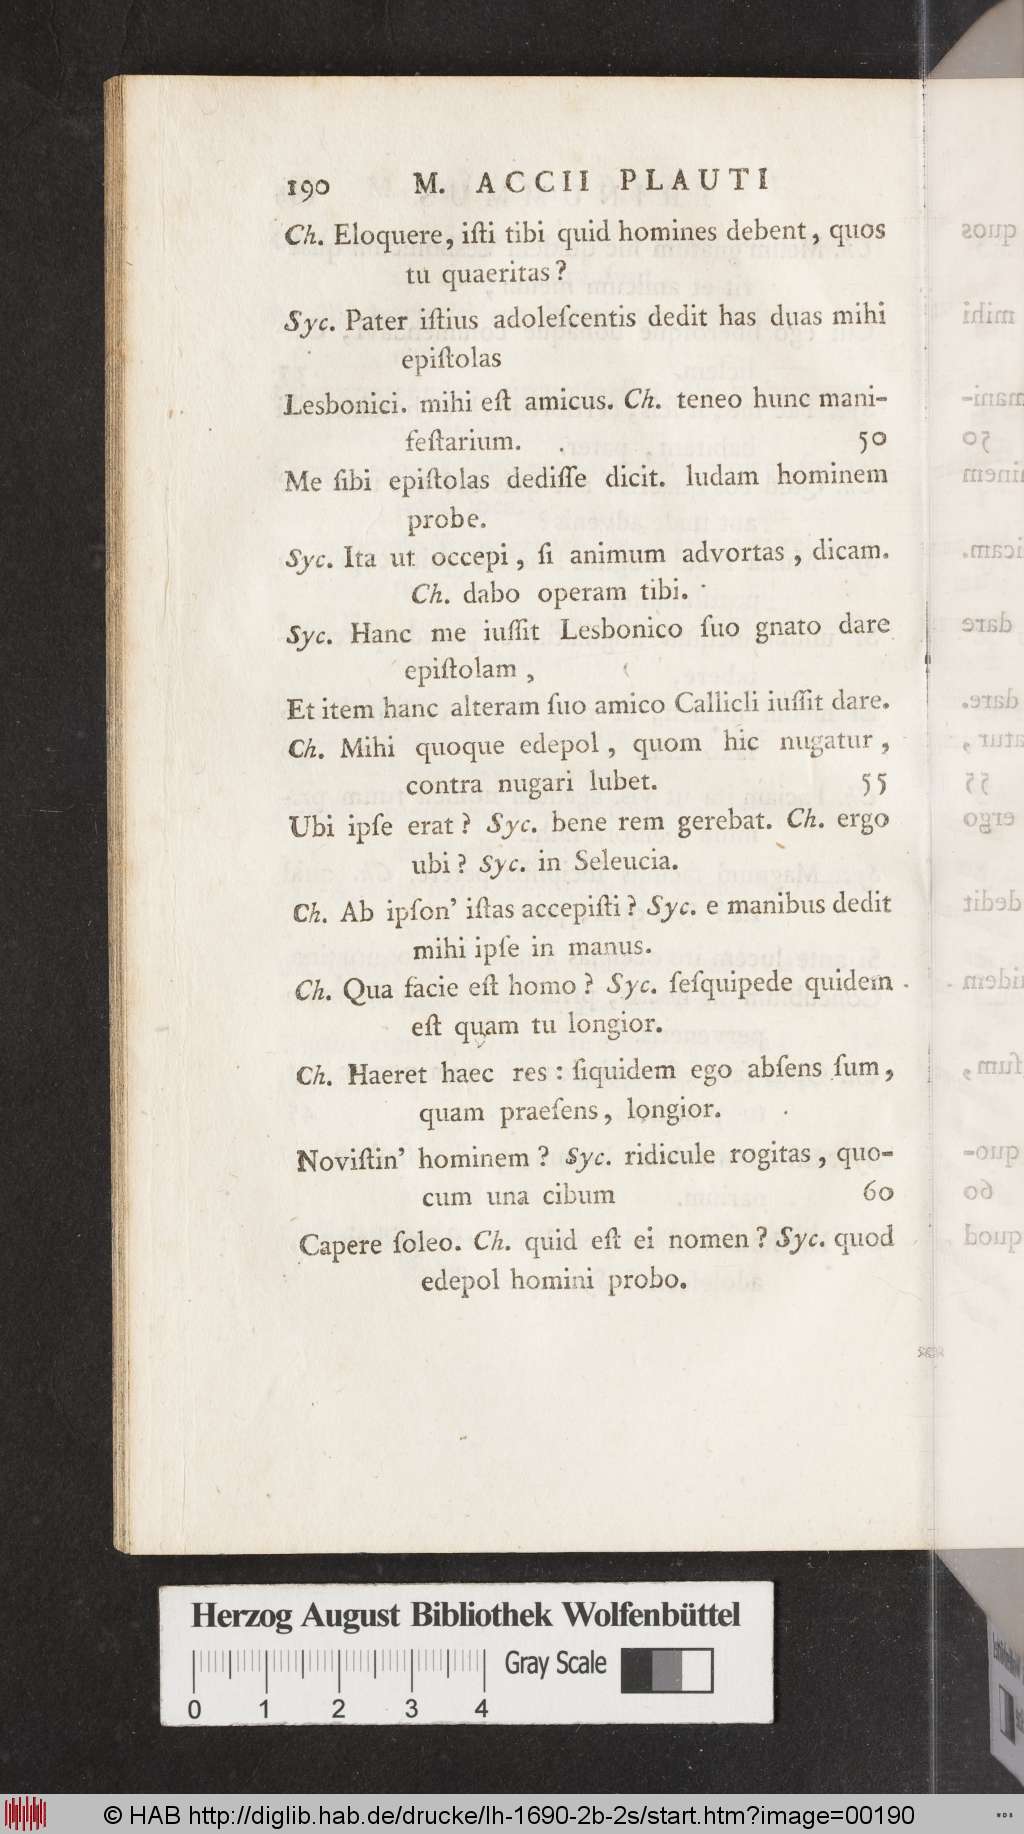 190 M. ACCII PLAUTI
Ch. Eloquere, iſti tibi quid homines debent, quos
tu quaeritas?
Syc. Pater iſtius adoleſcentis dedit has duas mihi
epiſtolas
Lesbonici. mihi eſt amicus. Ch. teneo hunc mani-
feſtarium. 50
Me ſibi epiſtolas dediſſe dicit. ludam hominem
probe.
Syc. Ita ut occepi, ſi animum advortas, dicam.
Ch. dabo operam tibi.
Syc. Hanc me iuſſit Lesbonico ſuo gnato dare
epiſtolam,
Et item hanc alteram ſuo amico Callicli iuſſit dare.
Ch. Mihi quoque edepol, quom hic nugatur,
contra nugari lubet. 55
Ubi ipſe erat? Syc. bene rem gerebat. Ch. ergo
ubi? Syc. in Seleucia.
Ch. Ab ipſon’ iſtas accepiſti? Syc. e manibus dedit
mihi ipſe in manus.
Ch. Qua facie eſt homo? Syc. ſeſquipede quidem
eſt quam tu longior.
Ch. Haeret haec res: ſiquidem ego abſens ſum,
quam praeſens, longior.
Noviſtin’ hominem? Syc. ridicule rogitas, quo-
cum una cibum 60
Capere ſoleo. Ch. quid eſt ei nomen? Syc. quod
edepol homini probo.
Herzog August Bibliothek Wolfenbüttel
Gray Scale
0 1 2 3 4
© HAB http://diglib.hab.de/drucke/lh-1690-2b-2s/start.htm?image=00190